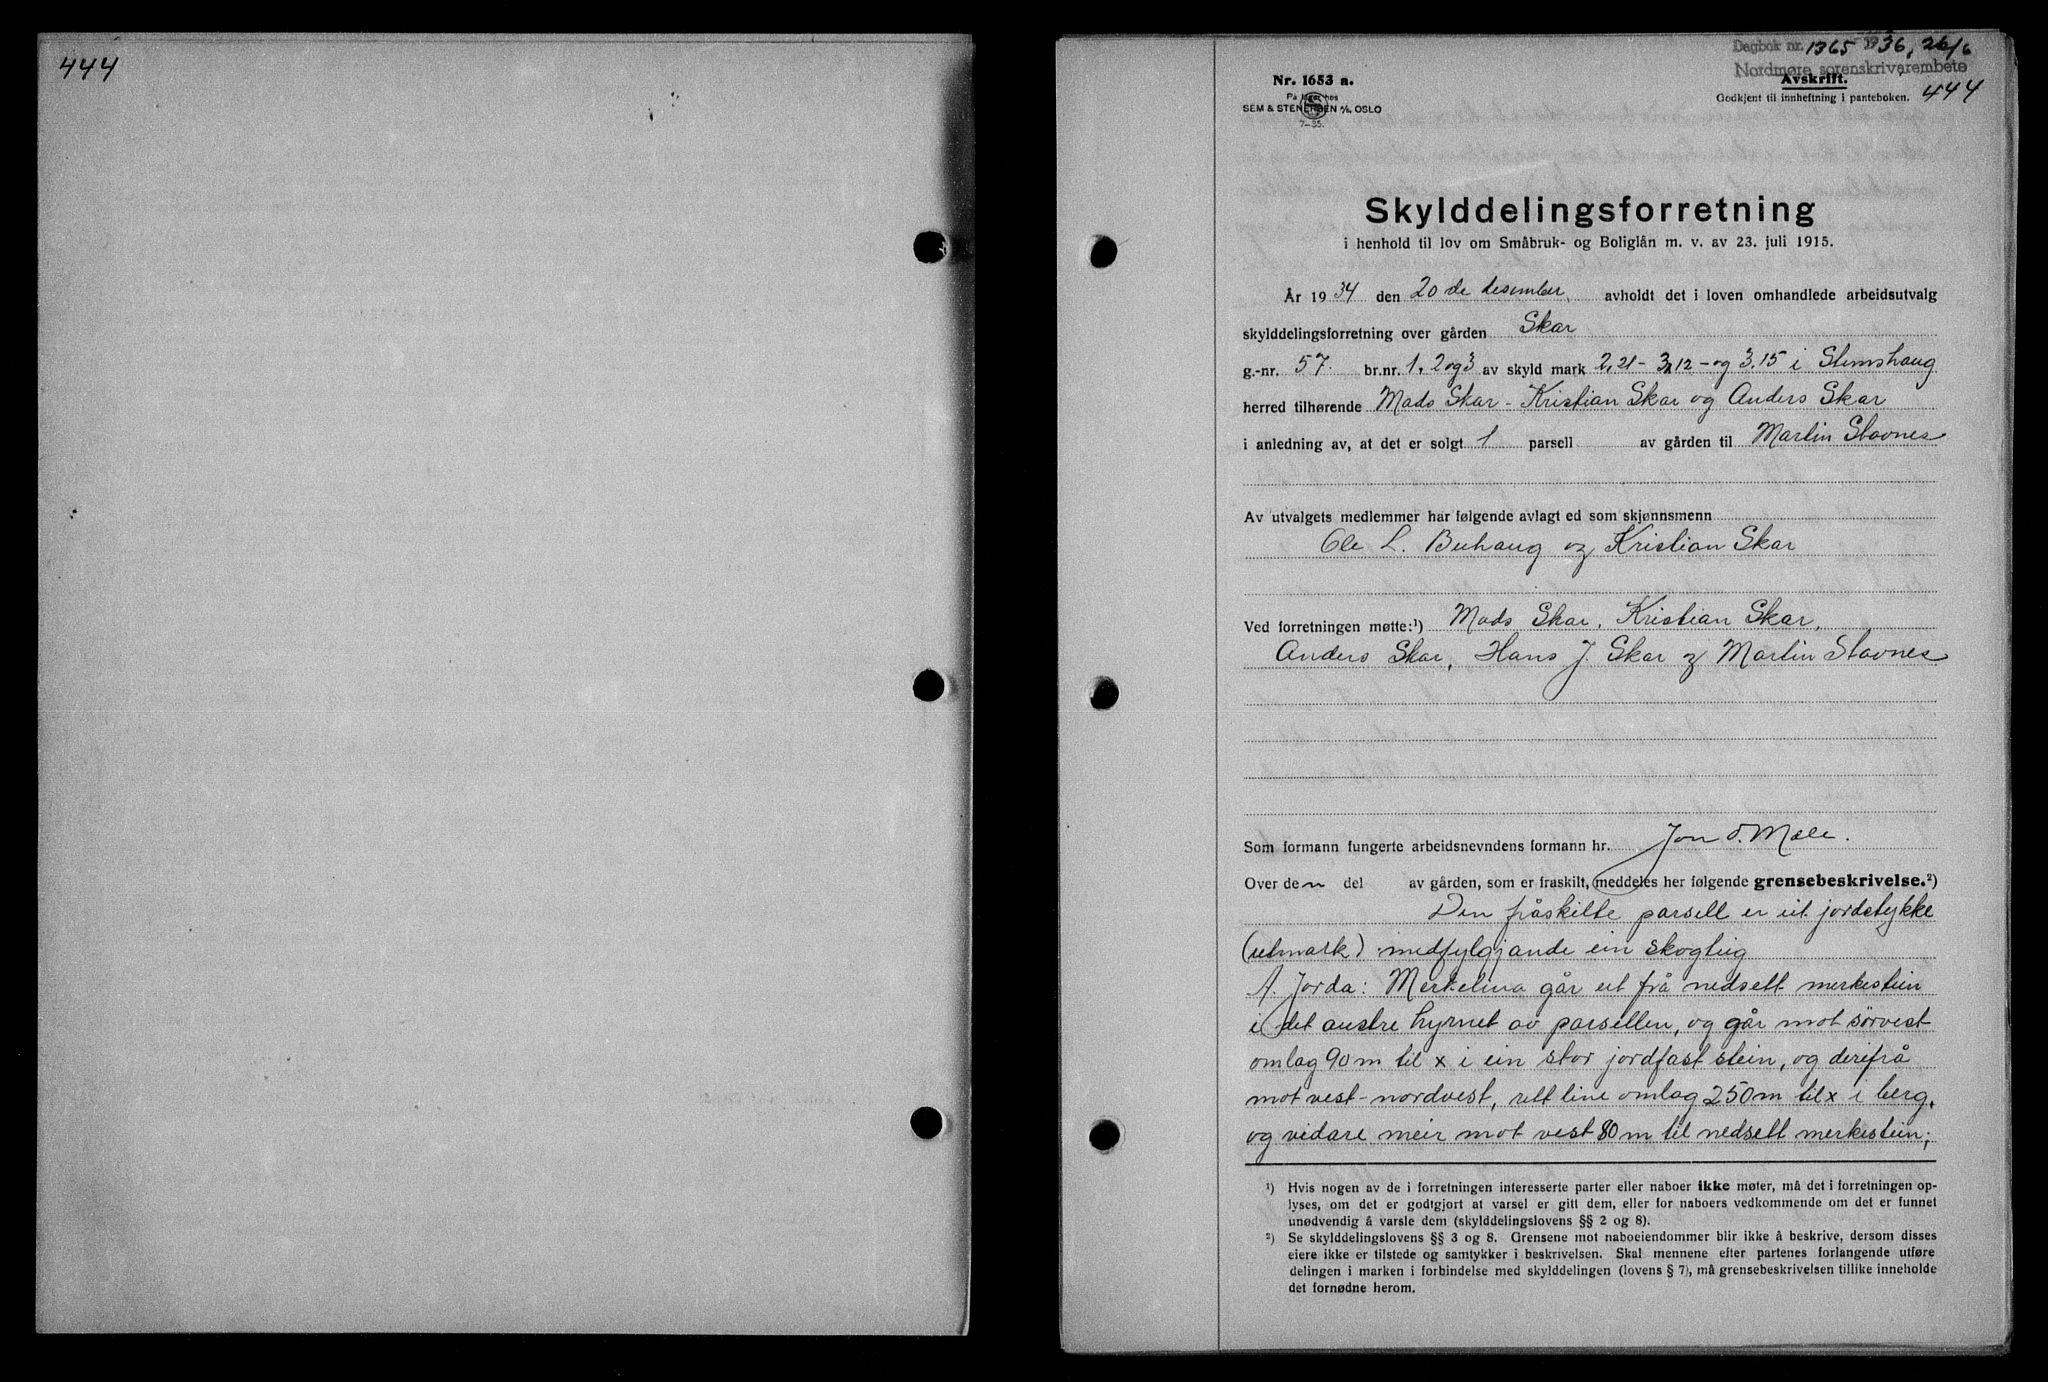 444
Dagbok nr. 1365 1936, 26/6
Nordmøre sorenskriverembete
Nr. 1653 a.
På lager hos
SEM & STENERSEN A/S, OSLO
7-35.
Avskrift.
Godkjent til innheftning i panteboken.
444
Skylddelingsforretning
i henhold til lov om Småbruk- og Boliglån m. v. av 23. juli 1915.
År 1934 den 20 de desember, avholdt det i loven omhandlede arbeidsutvalg
skylddelingsforretning over gården Skar
g.-nr. 57 br.nr. 1, 2 og 3 av skyld mark 2,21 - 3,12 - og 3.15 i Stemshaug
herred tilhørende Mads Skar - Kristian Skar og Anders Skar
i anledning av, at det er solgt 1 parsell av gården til Martin Stavnes
Av utvalgets medlemmer har følgende avlagt ed som skjønnsmenn
Ole L. Buhaug og Kristian Skar
Ved forretningen møtte:¹) Mads Skar, Kristian Skar,
Anders Skar, Hans J. Skar og Martin Stavnes
Som formann fungerte arbeidsnevndens formann hr. Jon O. Mæle.
Over den del av gården, som er fraskilt, meddeles her følgende grensebeskrivelse.²)
Den fråskilte parsell er eit jordstykke
(utmark) medfylgjande ein skogteig
A. Jorda: Merkelina går ut frå nedsett merkestein
i det austre hyrnet av parsellen, og går mot sørvest
omlag 90 m til x i ein stor jordfast stein, og derifrå
mot vest-nordvest, rett line omlag 250 m til x i berg,
og vidare meir mot vest 80 m til nedsett merkestein;
¹) Hvis nogen av de i forretningen interesserte parter eller naboer ikke møter, må det i forretningen op-
lyses, om det er godtgjort at varsel er gitt dem, eller for naboers vedkommende om det er funnet
unødvendig å varsle dem (skylddelingslovens §§ 2 og 8).
²) Se skylddelingslovens §§ 3 og 8. Grensene mot naboeiendommer blir ikke å beskrive, dersom disses
eiere ikke er tilstede og samtykker i beskrivelsen. Skal mennene efter partenes forlangende utføre
delingen i marken i forbindelse med skylddelingen (lovens § 7), må grensebeskrivelsen tillike inneholde
det fornødne herom.